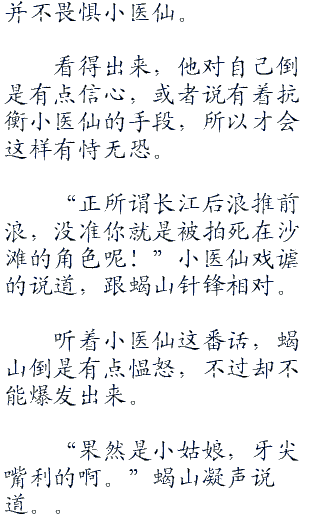 并不畏惧小医仙。
看得出来，他对自己倒
是有点信心，或者说有着抗
衡小医仙的手段，所以才会
这样有恃无恐。
“正所谓长江后浪推前
浪，没准你就是被拍死在沙
滩的角色呢！”小医仙戏谑
的说道，跟蝎山针锋相对。
听着小医仙这番话，蝎
山倒是有点愠怒，不过却不
能爆发出来。
“果然是小姑娘，牙尖
嘴利的啊。”蝎山凝声说
道。。